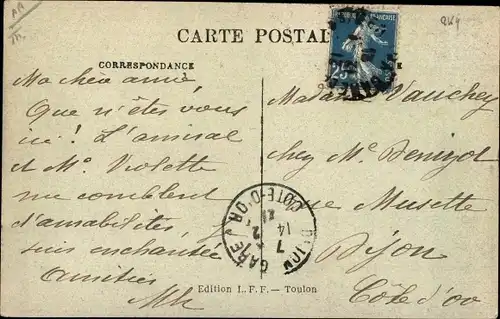 CARTE POSTALE
CORRESPONDANCE
Ma chère amie,
Que n'êtes vous
ici ! L'amiral
et Me Violette
me comblent
d'amabilités,
suis enchantée
Amitiés
Mh
Madame Vauchey
chez Me Denizot
rue Musette
Dijon
Côte d'or
25
DIJON GARE
COTE-D'OR
14
7
2
Edition L. F. F. — Toulon